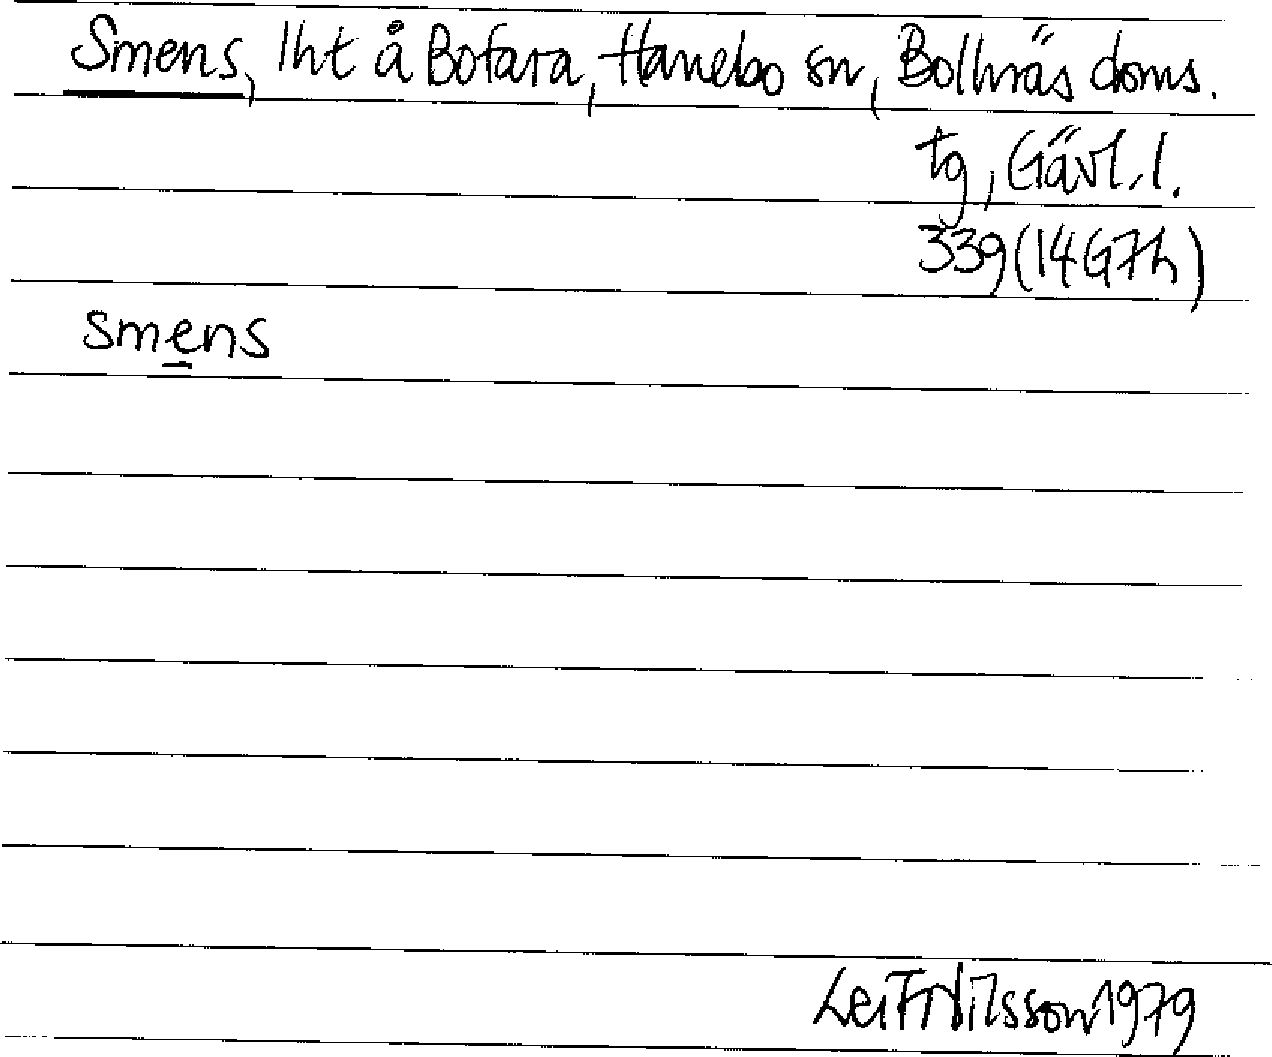 Smens, lht å Bofara, Hanebo sn, Bollnäs doms.
tg, Gävl. l.
339 (14G7h)
smens
Leif Nilsson 1979